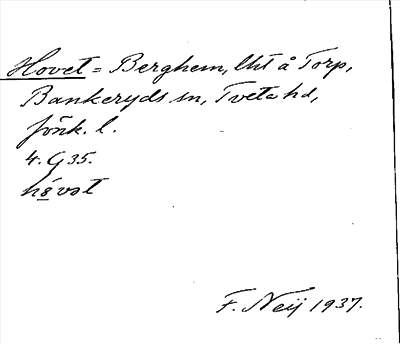 Hovet = Berghem, lht å Torp,
Bankeryds sn, Tveta hd,
Jönk. l.
4. G 35.
hóvət
F. Neij 1937.